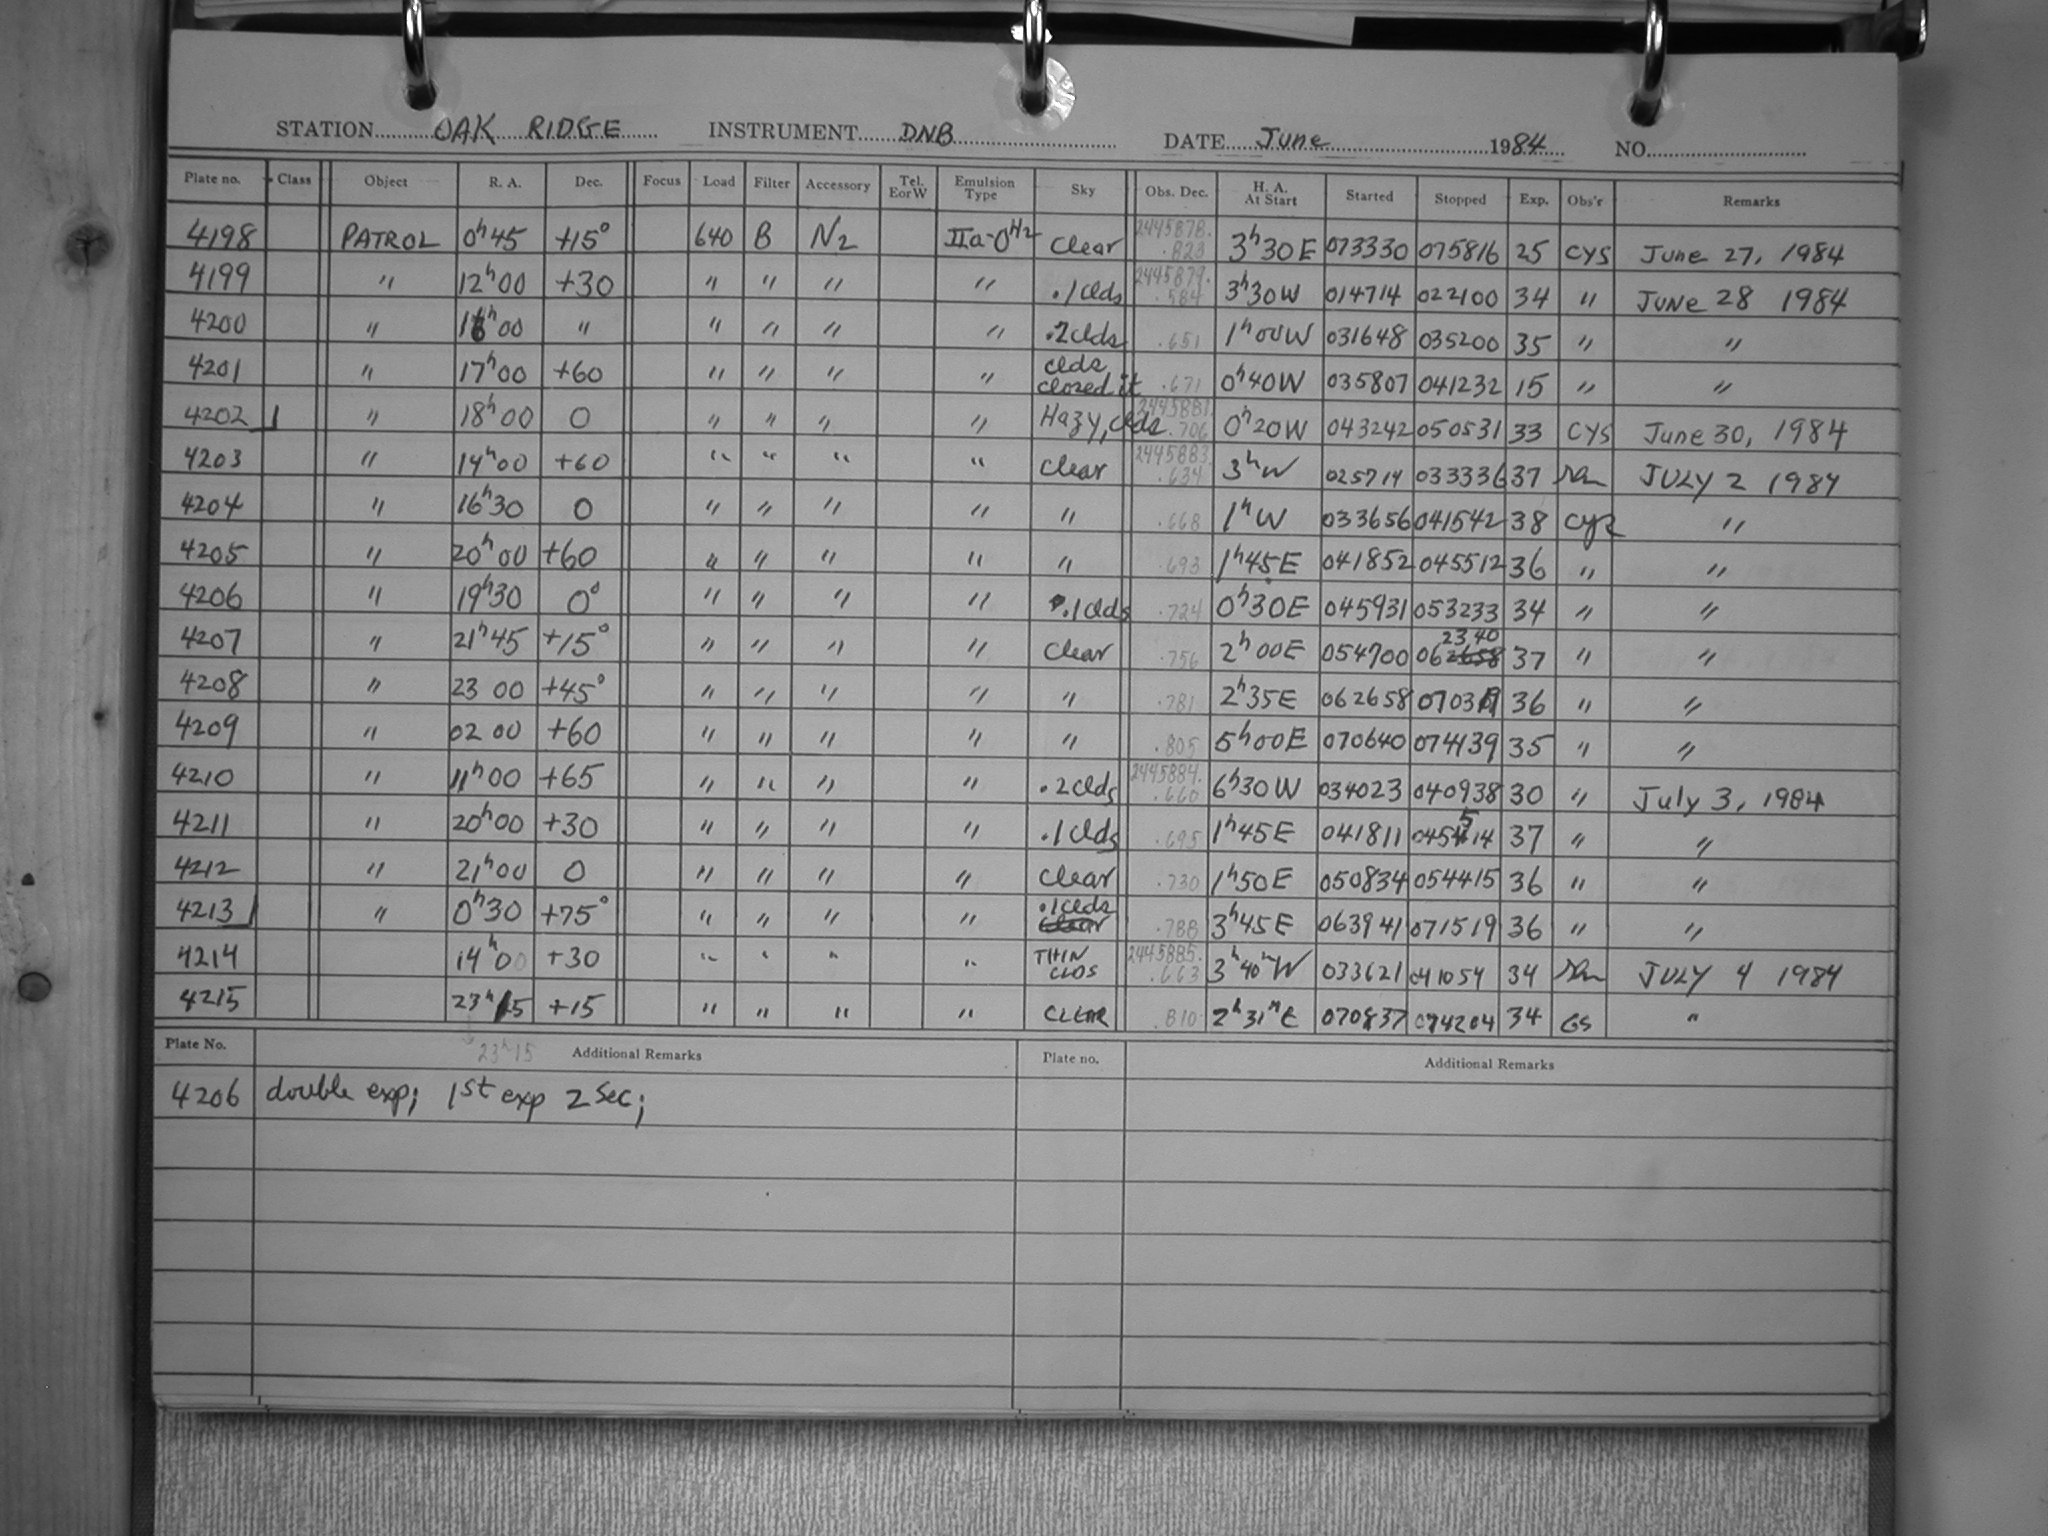 STATION OAK RIDGE INSTRUMENT DNB DATE June 1984 NO.
Plate no. Class Object R. A. Dec. Focus Load Filter Accessory Tel. EorW Emulsion Type Sky Obs. Dec. H. A. At Start Started Stopped Exp. Obs'r Remarks
4198 PATROL 0h45 +15° 640 B N2 IIa-O H2 Clear 2445878. .823 3h30E 073330 075816 25 CYS June 27, 1984
4199 " 12h00 +30 " " " " .1 clds 2445879. .584 3h30W 014714 022100 34 " JUNE 28 1984
4200 " 16h00 " " " " " .2 clds .651 1h00W 031648 035200 35 " "
4201 " 17h00 +60 " " " " clds, closed it .671 0h40W 035807 041232 15 " "
4202 " 18h00 0 " " " " Hazy, clds 2445881. .706 0h20W 043242 050531 33 CYS June 30, 1984
4203 " 14h00 +60 " " " " clear 2445883. .634 3hW 025714 033336 37 JULY 2 1984
4204 " 16h30 0 " " " " " .668 1hW 033656 041542 38 "
4205 " 20h00 +60 " " " " " .693 1h45E 041852 045512 36 " "
4206 " 19h30 0° " " " " .1 clds .724 0h30E 045931 053233 34 " "
4207 " 21h45 +15° " " " " clear .756 2h00E 054700 062340 37 " "
4208 " 23 00 +45° " " " " " .781 2h35E 062658 070319 36 " "
4209 " 02 00 +60 " " " " " .805 5h00E 070640 074139 35 " "
4210 " 11h00 +65 " " " " .2 clds 2445884. .660 6h30W 034023 040938 30 " July 3, 1984
4211 " 20h00 +30 " " " " .1 clds .695 1h45E 041811 045514 37 " "
4212 " 21h00 0 " " " " clear .730 1h50E 050834 054415 36 " "
4213 " 0h30 +75° " " " " .1 clds clear .788 3h45E 063941 071519 36 " "
4214 14h00 +30 " " " " THIN CLDS 2445885. .663 3h40mW 033621 041054 34 JULY 4 1984
4215 23h15 +15 " " " " CLEAR .810 2h31mE 070837 074204 34 GS "
Plate No. 23h15 Additional Remarks Plate no. Additional Remarks
4206 double exp; 1st exp 2 sec;